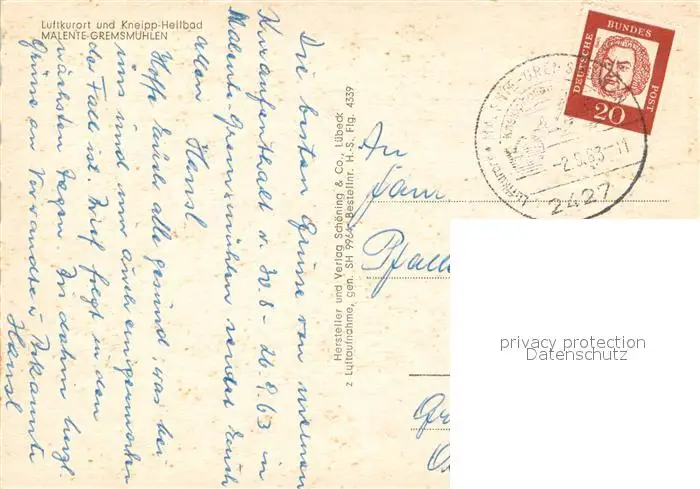 Luftkurort und Kneipp-Heilbad
MALENTE-GREMSMÜHLEN
Die besten Grüsse von meinem
Kuraufenthalt v. 30.8 - 26.9.63 in
Malente-Gremsmühlen sendet Euch
allen Hansl
Hoffe Euch alle gesund, was bei
uns und mir auch einigermaßen
der Fall ist. Brief folgt in den
nächsten Tagen. Im dahm herzl.
Grüsse an Verwandte u. Bekannte
Hansl
Hersteller und Verlag Schöning & Co., Lübeck
z Luftaufnahme, gen. SH 996 Bestellnr. H.-S. Flg. 4339
An
Fam
DEUTSCHE BUNDES POST
20
-2.9.63-11
2427
Luftkurort
privacy protection
Datenschutz